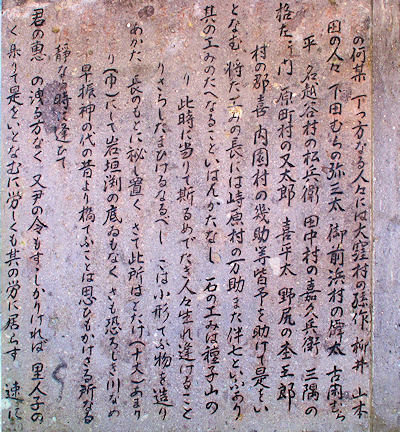 の何某 下つ方なる人々には大窪村の孫作 柳井 山本
田の人々 下田むらの弥三太 御前浜村の傳太 古閑むら
平 名越谷村の松兵衛 田中村の嘉久兵衛 三隅の
格左ヱ門 原町村の又太郎 喜平太 野尻の杢五郎
村の郡喜 内園村の幾助等皆予を助けて是をい
となむ 将たくみの長には峙原村の万助また伴七といふあり
其の工みのたへなることいはんかたなし 石の工みは種子山の
り 此時に当りて斯るめでたき人々生れ逢けること
りさらしたまひけるなるへし こは小形てふ物を造り
あかた 長のもとに秘し置く さて此所はとたけ(十丈)あまり
り(巾)にして岩垣渕の底ゐもなくさも恐ろしき川なめ
早振神の代の昔より橋てふことは思ひもかけさる所なる
静なる時に逢ひて
君の恵 の洩る方なく 又尹の令もすゝしかりければ 里人子の
く来りて是をいとなむに労しくも其の労に居らす 速に